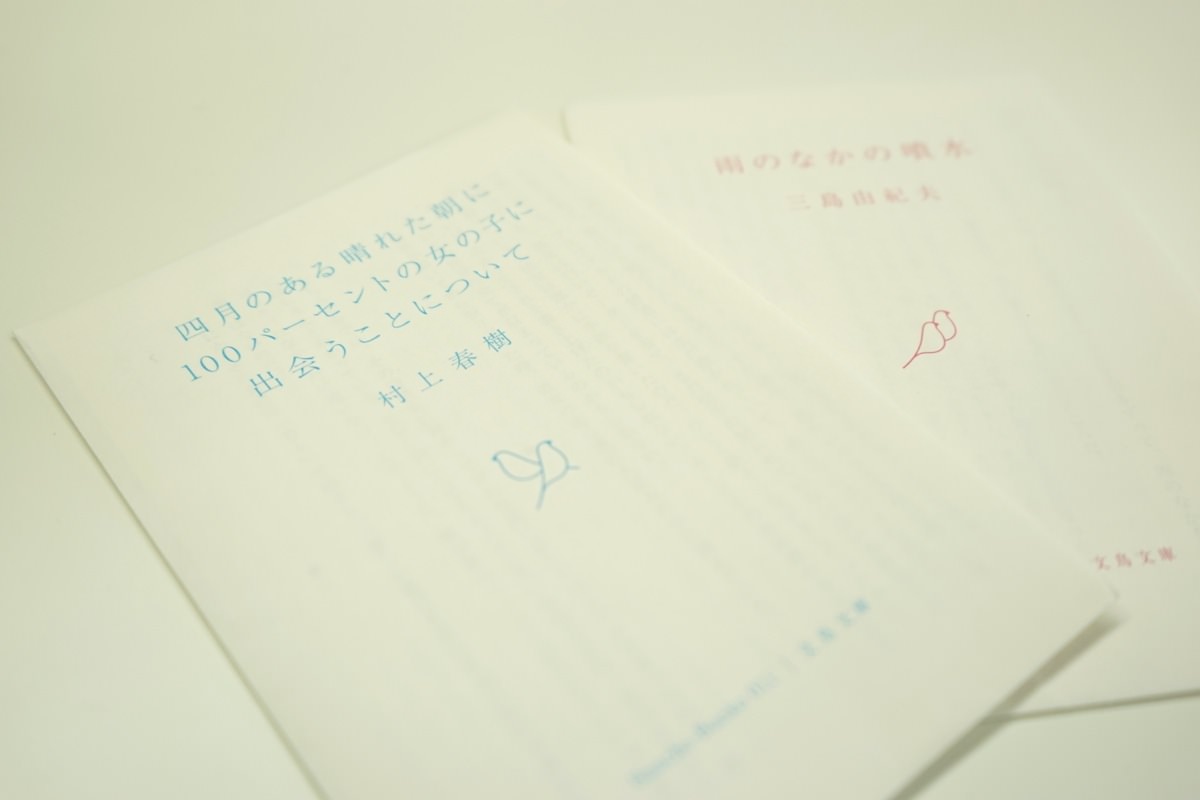 四月のある晴れた朝に
100パーセントの女の子に
出会うことについて
村上春樹
雨のなかの噴水
三島由紀夫
文鳥文庫
文鳥文庫